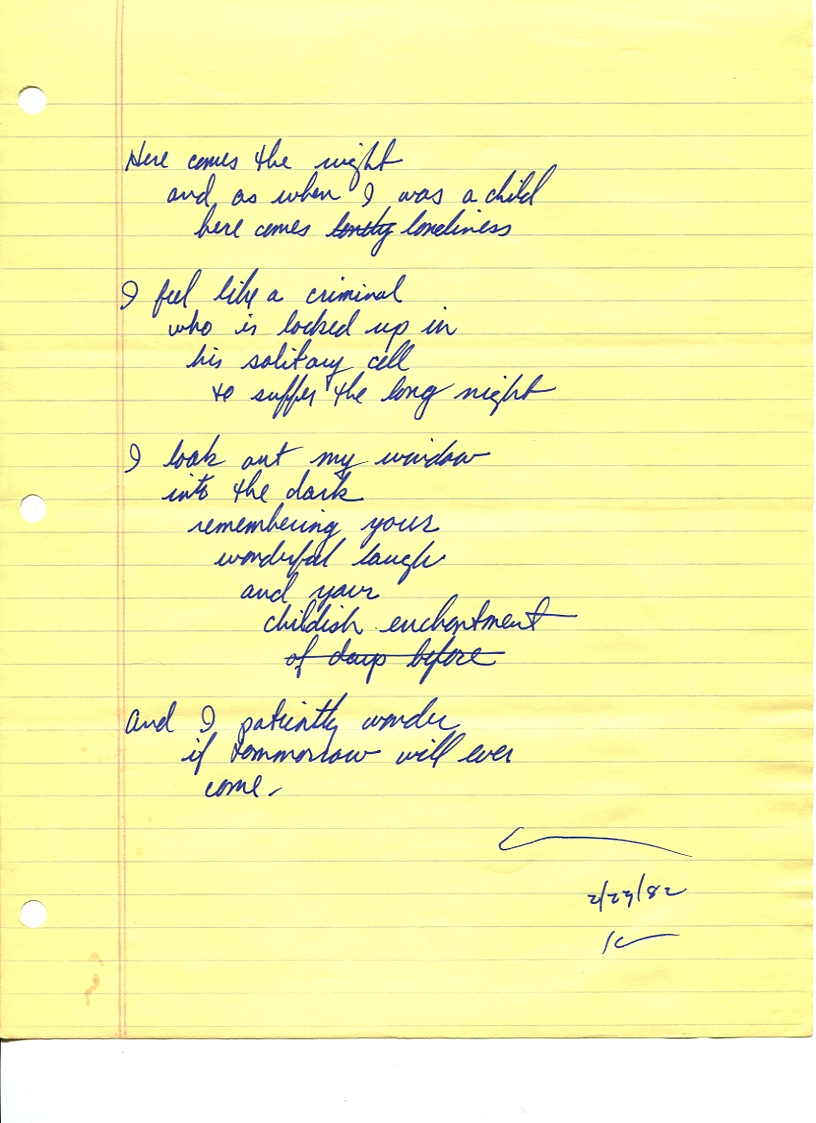 Here comes the night
and as when I was a child
here comes lonely loneliness
I feel like a criminal
who is locked up in
his solitary cell
to suffer the long night
I look out my window
into the dark
remembering your
wonderful laugh
and your
childish enchantment
of days before
And I patiently wonder
if tommorrow will ever
come.
2/27/82
K